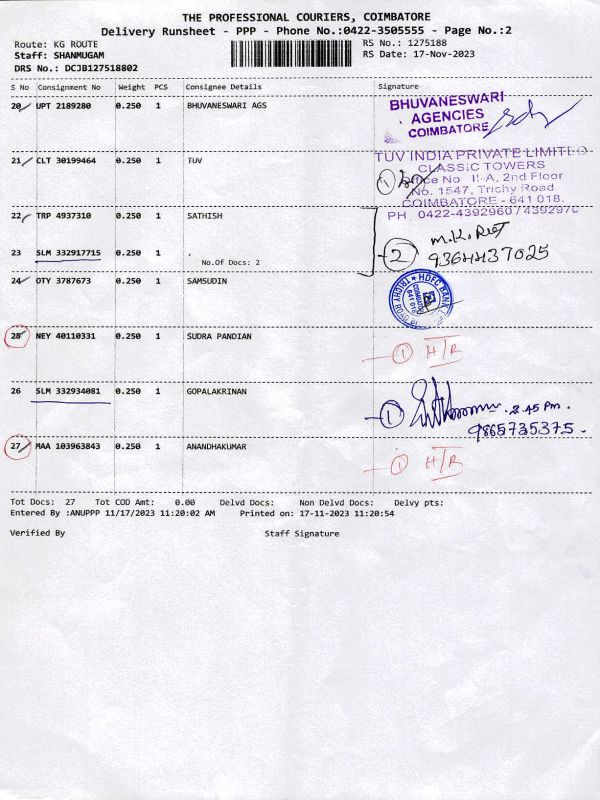 THE PROFESSIONAL COURIERS, COIMBATORE
Delivery Runsheet - PPP - Phone No.:0422-3505555 - Page No.:2
Route: KG ROUTE
RS No.: 1275188
Staff: SHANMUGAM
RS Date: 17-Nov-2023
DRS No.: DCJB127518802
S No Consignment No Weight PCS Consignee Details Signature
20 UPT 2189280 0.250 1 BHUVANESWARI AGS
BHUVANESWARI
AGENCIES
COIMBATORE
21 CLT 30199464 0.250 1 TUV
TUV INDIA PRIVATE LIMITED
CLASSIC TOWERS
Office No II-A, 2nd Floor
No. 1547, Trichy Road
COIMBATORE - 641 018.
PH 0422-4392960 / 4392970
1
22 TRP 4937310 0.250 1 SATHISH
23 SLM 332917715 0.250 1 .
No.Of Docs: 2
2
9364437025
24 OTY 3787673 0.250 1 SAMSUDIN
HDFC BANK
COIMBATORE
641 018
TRICHY ROAD
25 NEY 40110331 0.250 1 SUDRA PANDIAN
1 H/R
26 SLM 332934081 0.250 1 GOPALAKRINAN
1 2.45 Pm.
9865735375.
27 MAA 103963843 0.250 1 ANANDHAKUMAR
1 H/R
Tot Docs: 27 Tot COD Amt: 0.00 Delvd Docs: Non Delvd Docs: Delvy pts:
Entered By :ANUPPP 11/17/2023 11:20:02 AM Printed on: 17-11-2023 11:20:54
Verified By Staff Signature